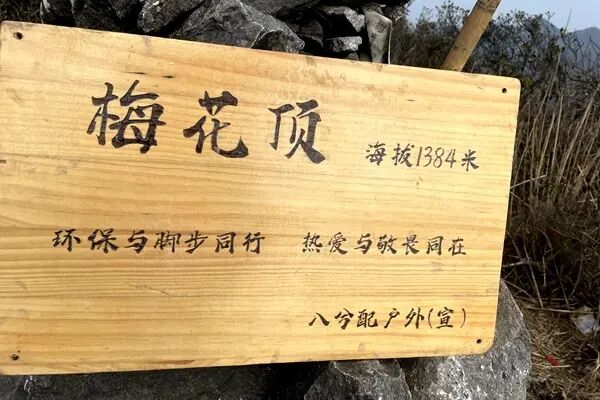 梅花顶 海拔1384米
环保与脚步同行 热爱与敬畏同在
八分配户外(宣)